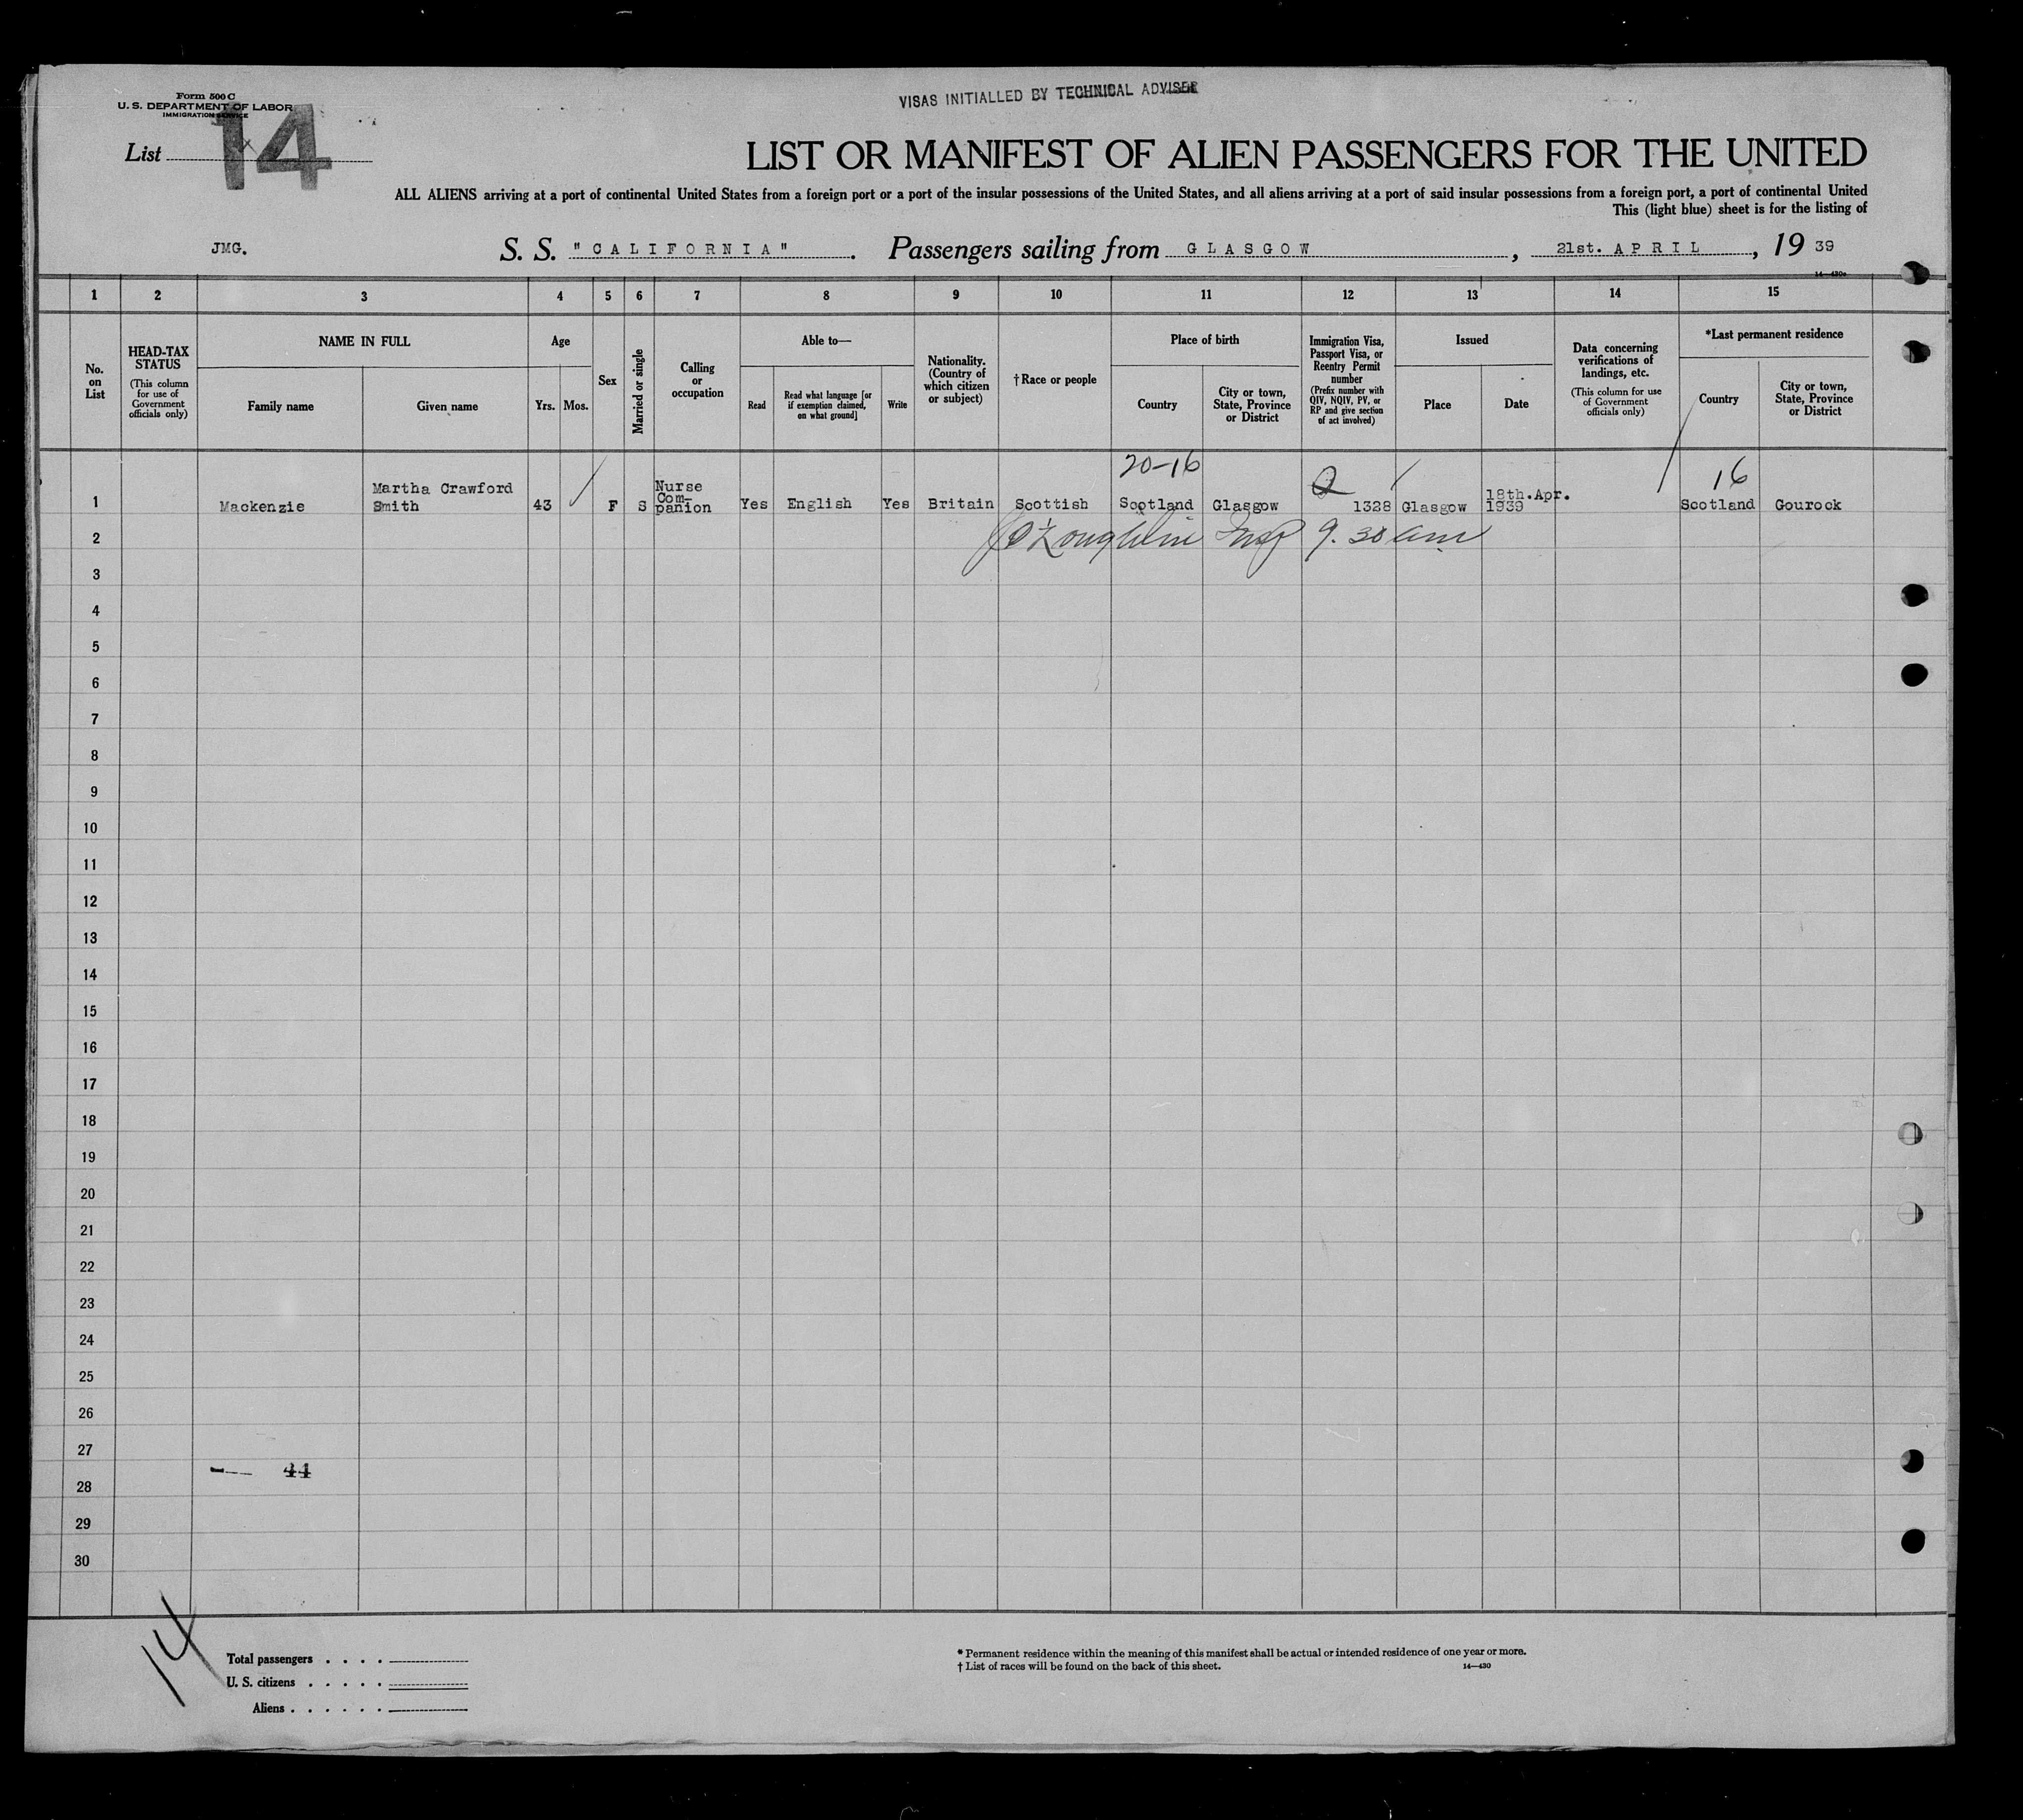 Form 500 C
U. S. DEPARTMENT OF LABOR
IMMIGRATION SERVICE
VISAS INITIALLED BY TECHNICAL ADVISER
List 14
LIST OR MANIFEST OF ALIEN PASSENGERS FOR THE UNITED
ALL ALIENS arriving at a port of continental United States from a foreign port or a port of the insular possessions of the United States, and all aliens arriving at a port of said insular possessions from a foreign port, a port of continental United
This (light blue) sheet is for the listing of
JMG. S. S. "CALIFORNIA". Passengers sailing from GLASGOW, 21st. APRIL, 19 39
14—430a
1 2 3 4 5 6 7 8 9 10 11 12 13 14 15
No. on List
HEAD-TAX STATUS
(This column for use of Government officials only)
NAME IN FULL
Family name Given name
Age
Yrs. Mos.
Sex
Married or single
Calling or occupation
Able to—
Read
Read what language [or if exemption claimed, on what ground]
Write
Nationality. (Country of which citizen or subject)
†Race or people
Place of birth
Country
City or town, State, Province or District
Immigration Visa, Passport Visa, or Reentry Permit number
(Prefix number with QIV, NQIV, PV, or RP and give section of act involved)
Issued
Place Date
Data concerning verifications of landings, etc.
(This column for use of Government officials only)
*Last permanent residence
Country
City or town, State, Province or District
20-16 Q 16
1 Mackenzie Martha Crawford Smith 43 F S Nurse Com-panion Yes English Yes Britain Scottish Scotland Glasgow 1328 Glasgow 18th.Apr. 1939 Scotland Gourock
2 O'Loughlin Insp 9.30 am
3
4
5
6
7
8
9
10
11
12
13
14
15
16
17
18
19
20
21
22
23
24
25
26
27
44
28
29
30
14
Total passengers . . . .
U. S. citizens . . . . .
Aliens . . . . . .
* Permanent residence within the meaning of this manifest shall be actual or intended residence of one year or more.
† List of races will be found on the back of this sheet. 14—430